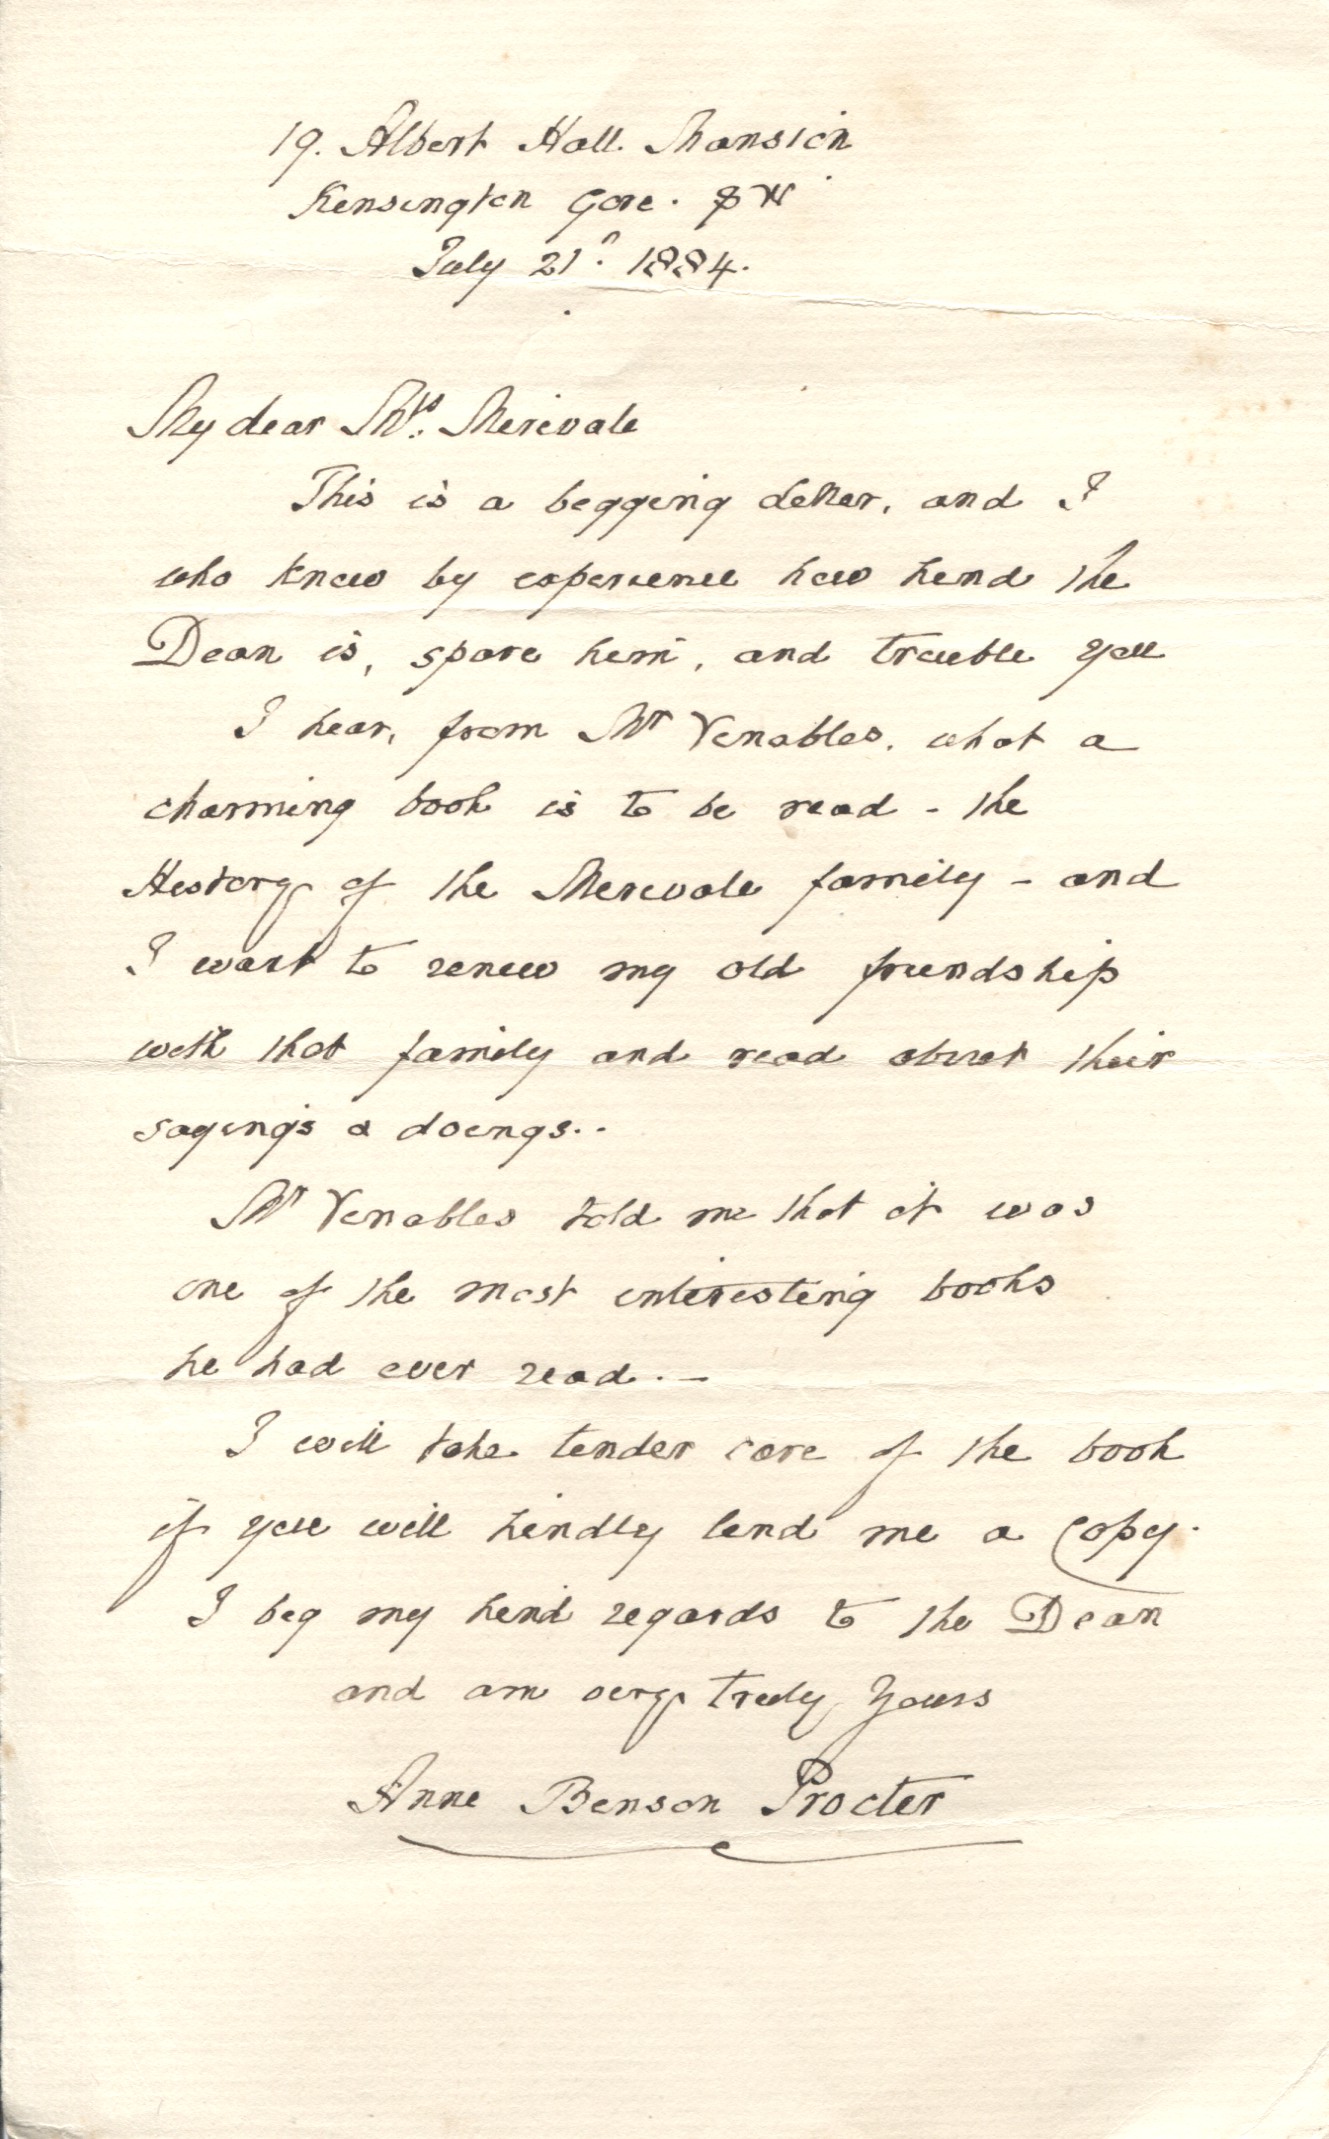 19. Albert Hall. Mansion
Kensington Gore. SW
July 21. 1884.
My dear Mrs. Merivale
This is a begging Letter, and I
who know by experience how kind the
Dean is, spare him, and trouble you
I hear, from Mr Venables, what a
charming book is to be read - the
History of the Merivale family - and
I want to renew my old friendship
with that family and read about their
sayings & doings..
Mr Venables told me that it was
one of the most interesting books
he had ever read. -
I will take tender care of the book
if you will kindly lend me a copy.
I beg my kind regards to the Dean
and am very truly yours
Anne Benson Procter